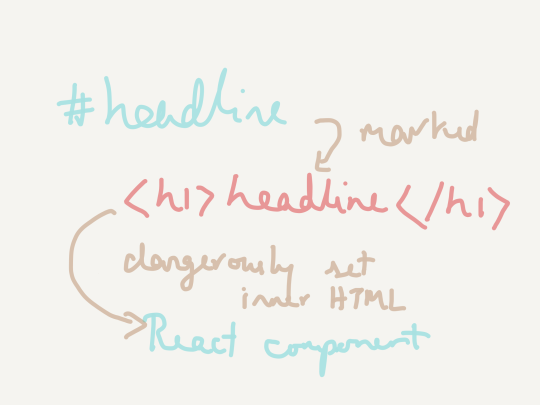 #headline
marked
<h1>headline</h1>
dangerously set
inner HTML
React component